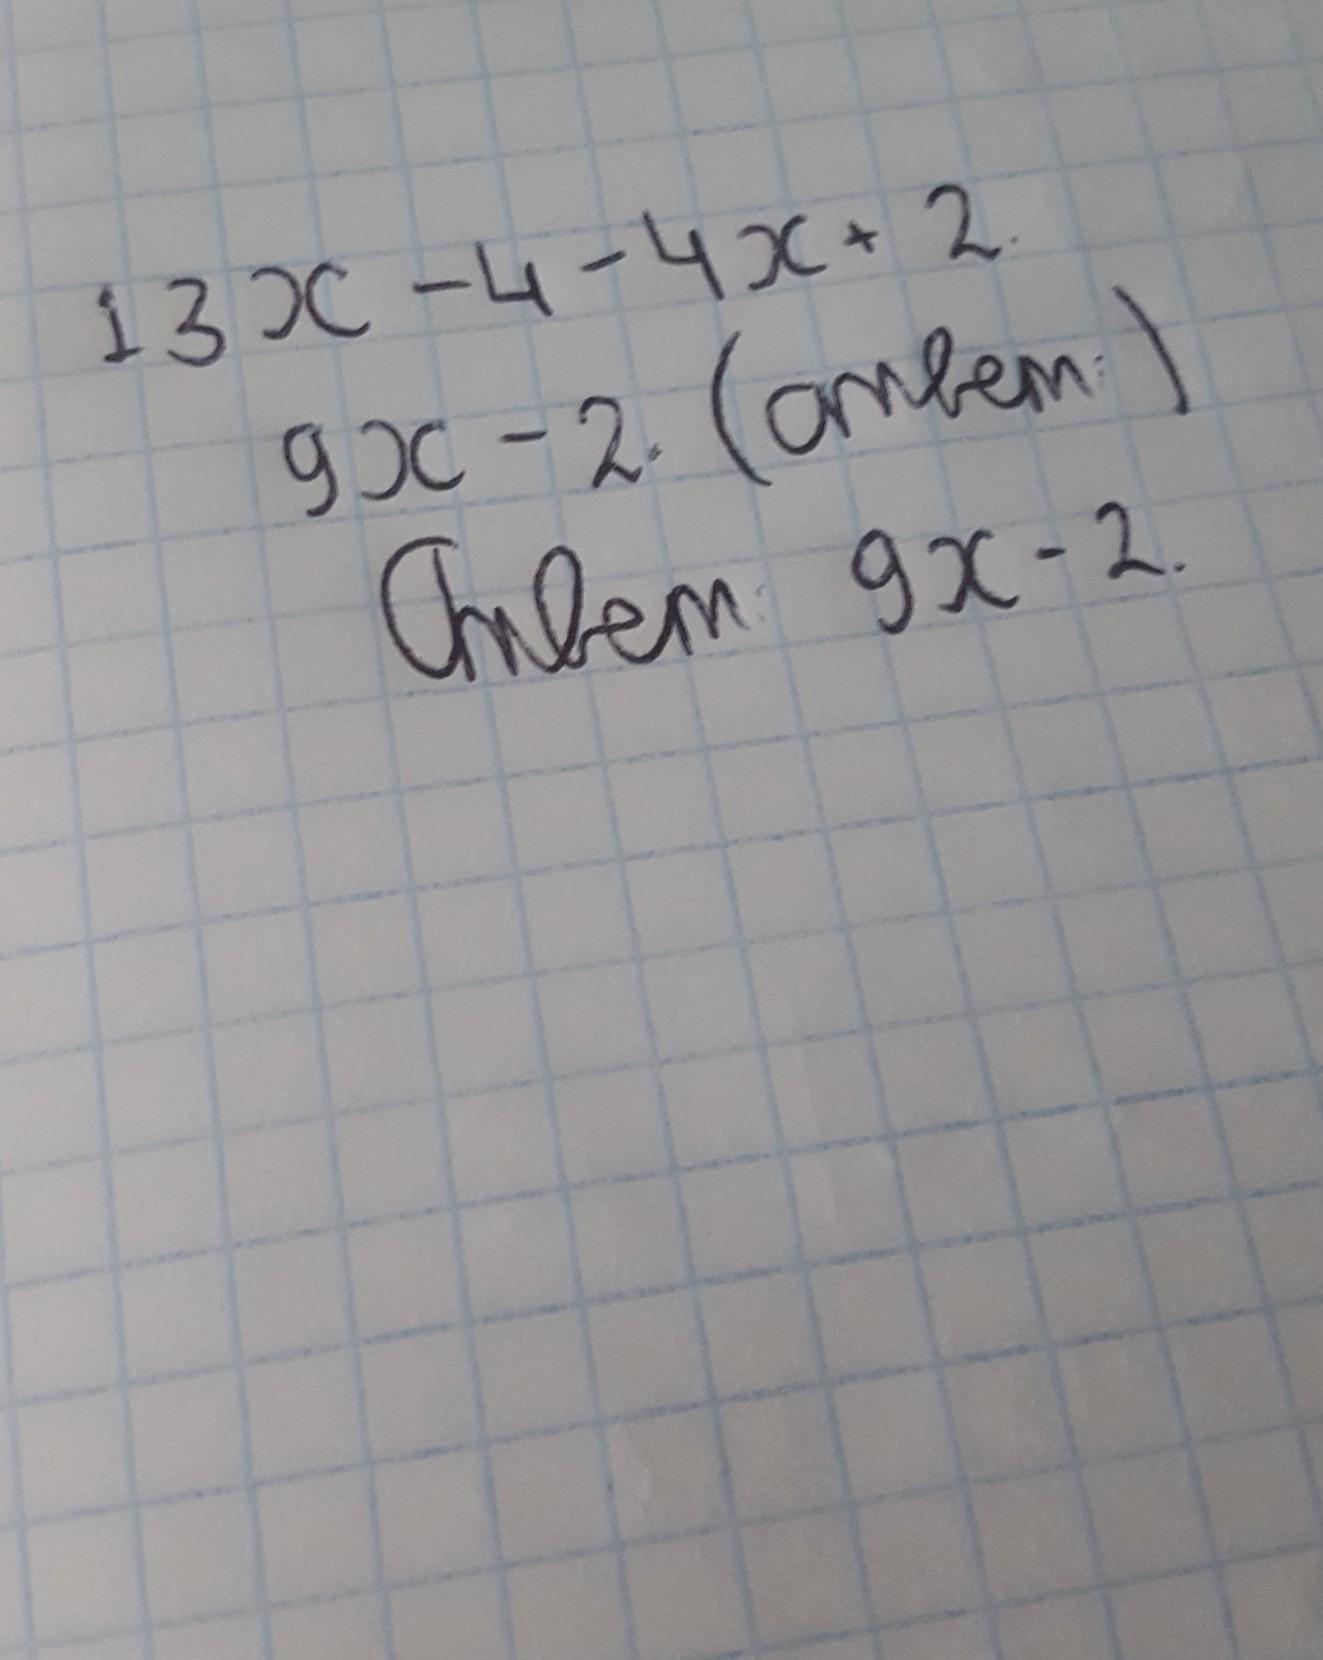 13x - 4 - 4x + 2.
9x - 2. (ответ:)
Ответ: 9x - 2.